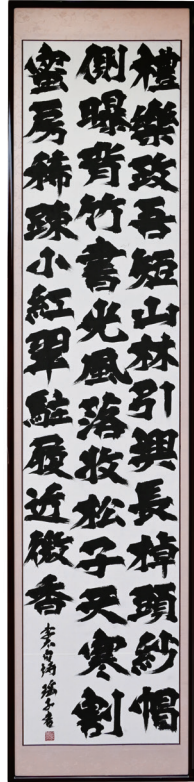 禮樂攻吾短山林引興長掉頭紗帽
側曝背竹書光風落收松子天寒割
蜜房稀疎小紅翠駐屐近微香